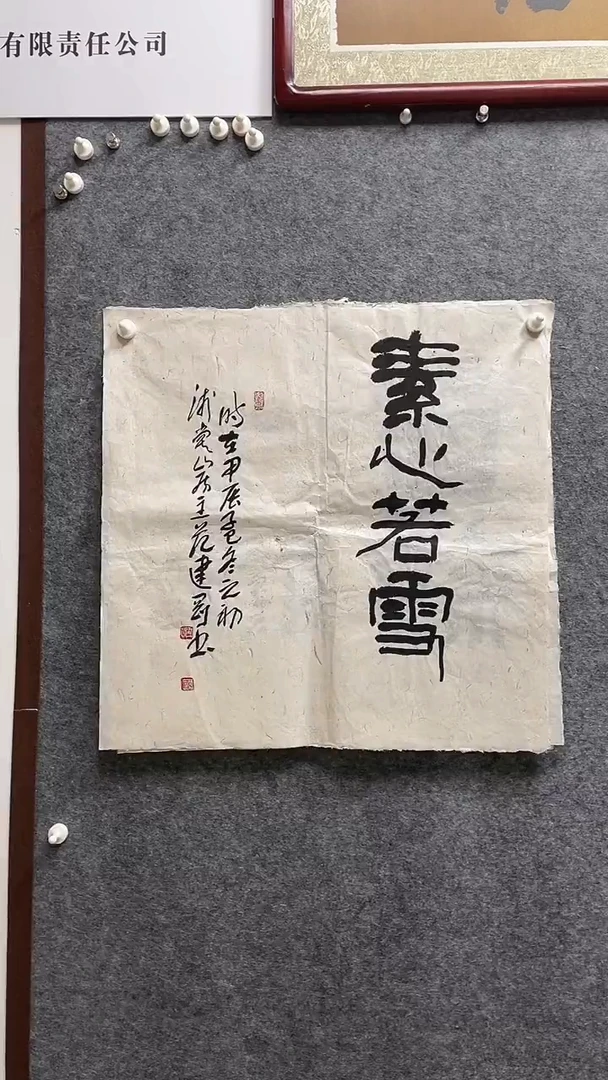 有限责任公司
素心若雪
时在甲辰孟冬之初
山房主范建书